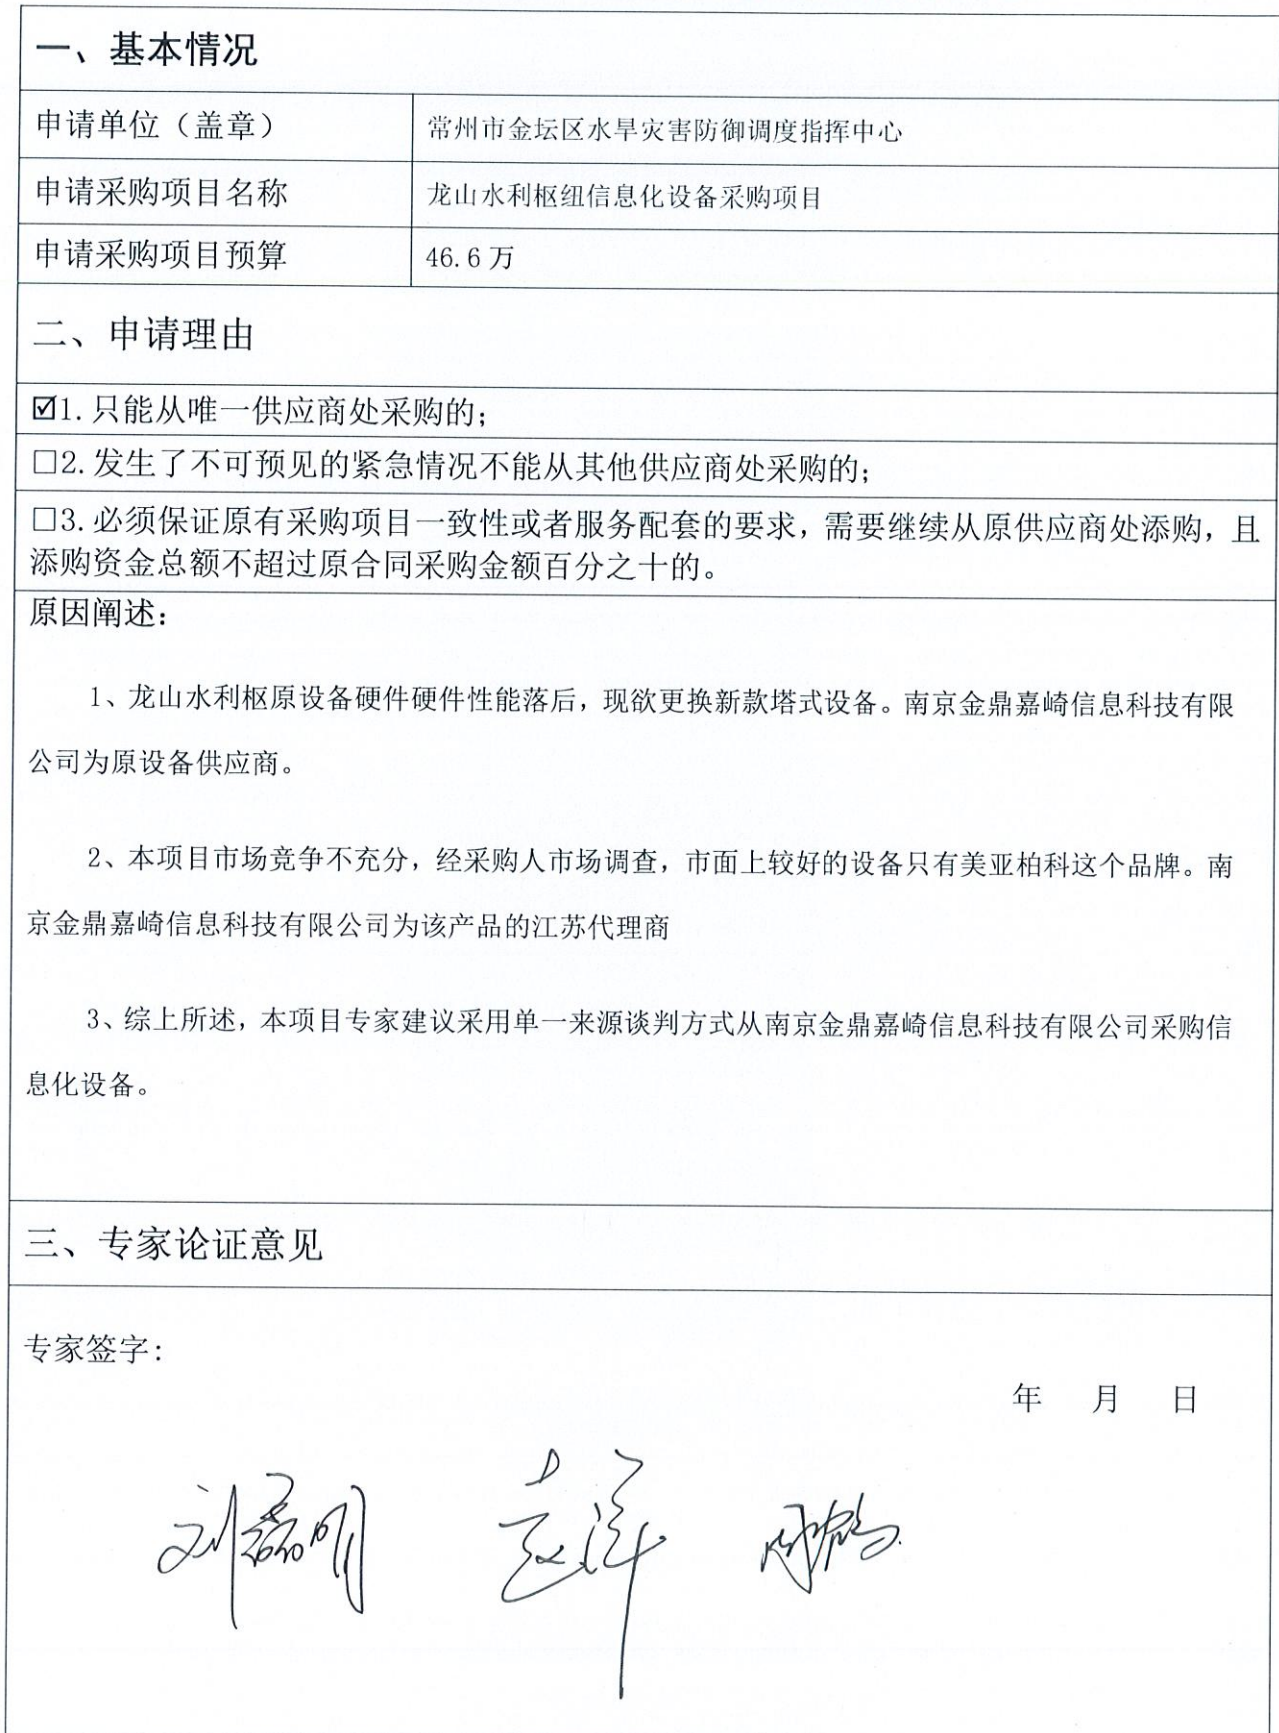 一、基本情况
申请单位（盖章）
常州市金坛区水旱灾害防御调度指挥中心
申请采购项目名称
龙山水利枢纽信息化设备采购项目
申请采购项目预算
46.6万
二、申请理由
☑1.只能从唯一供应商处采购的；
□2.发生了不可预见的紧急情况不能从其他供应商处采购的；
□3.必须保证原有采购项目一致性或者服务配套的要求，需要继续从原供应商处添购，且
添购资金总额不超过原合同采购金额百分之十的。
原因阐述：
1、龙山水利枢原设备硬件硬件性能落后，现欲更换新款塔式设备。南京金鼎嘉崎信息科技有限
公司为原设备供应商。
2、本项目市场竞争不充分，经采购人市场调查，市面上较好的设备只有美亚柏科这个品牌。南
京金鼎嘉崎信息科技有限公司为该产品的江苏代理商
3、综上所述，本项目专家建议采用单一来源谈判方式从南京金鼎嘉崎信息科技有限公司采购信
息化设备。
三、专家论证意见
专家签字：
年 月 日